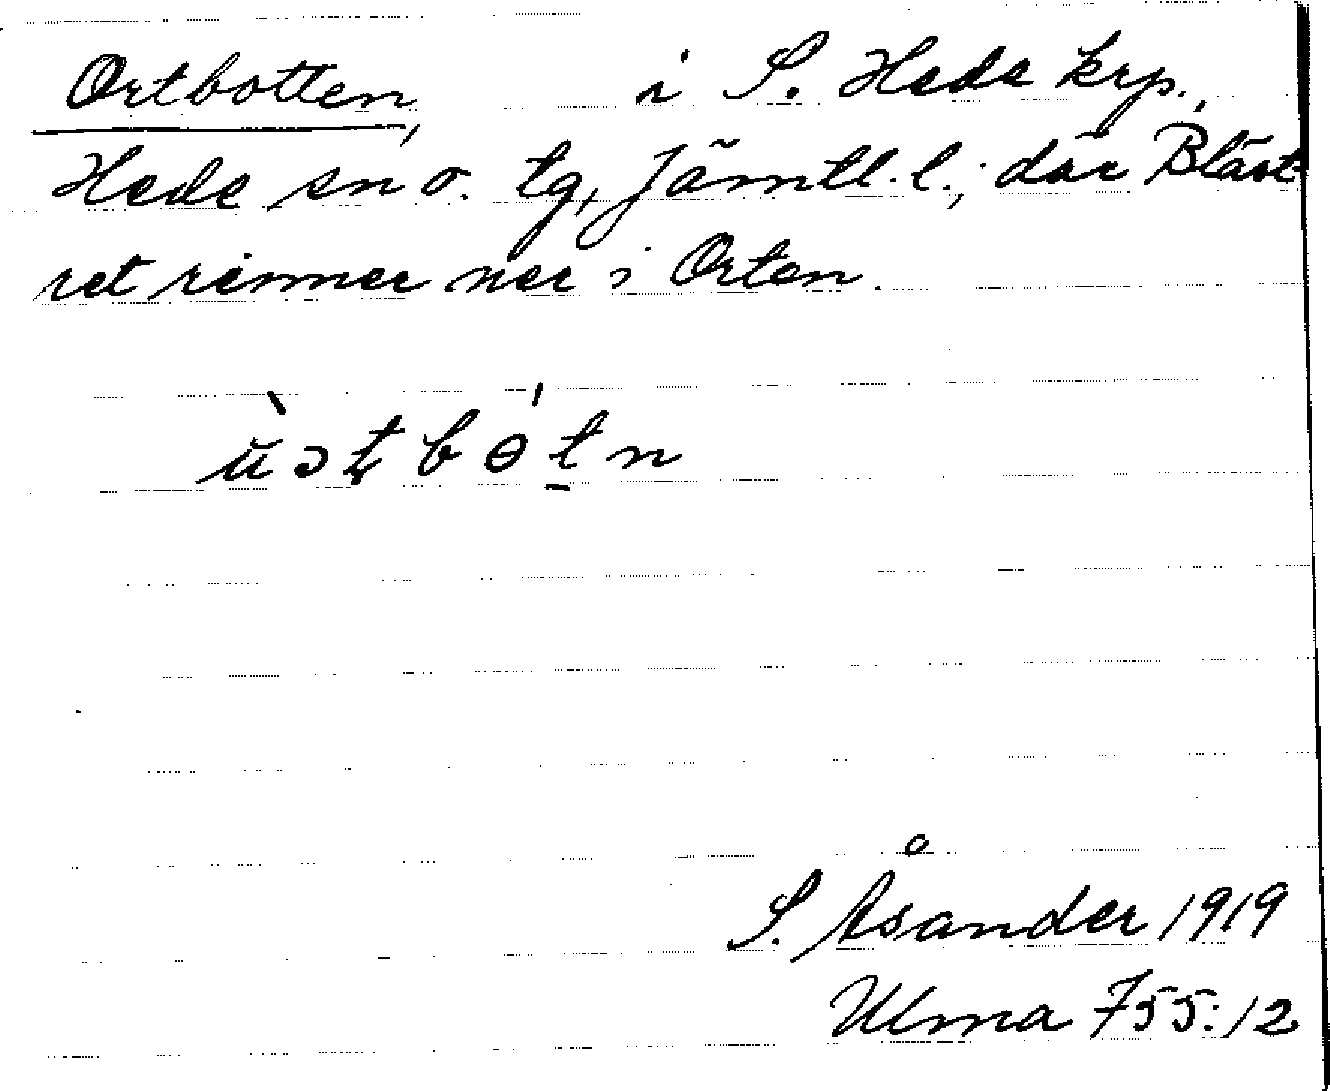 Ortbotten, i S. Heds krp.,
Heds sn o. tg, Jämtl. l.; där Bläst-
ret rinner ner i Orten.
ùəṭbɵ́t̲n
S. Åsander 1919
Ulma 755:12